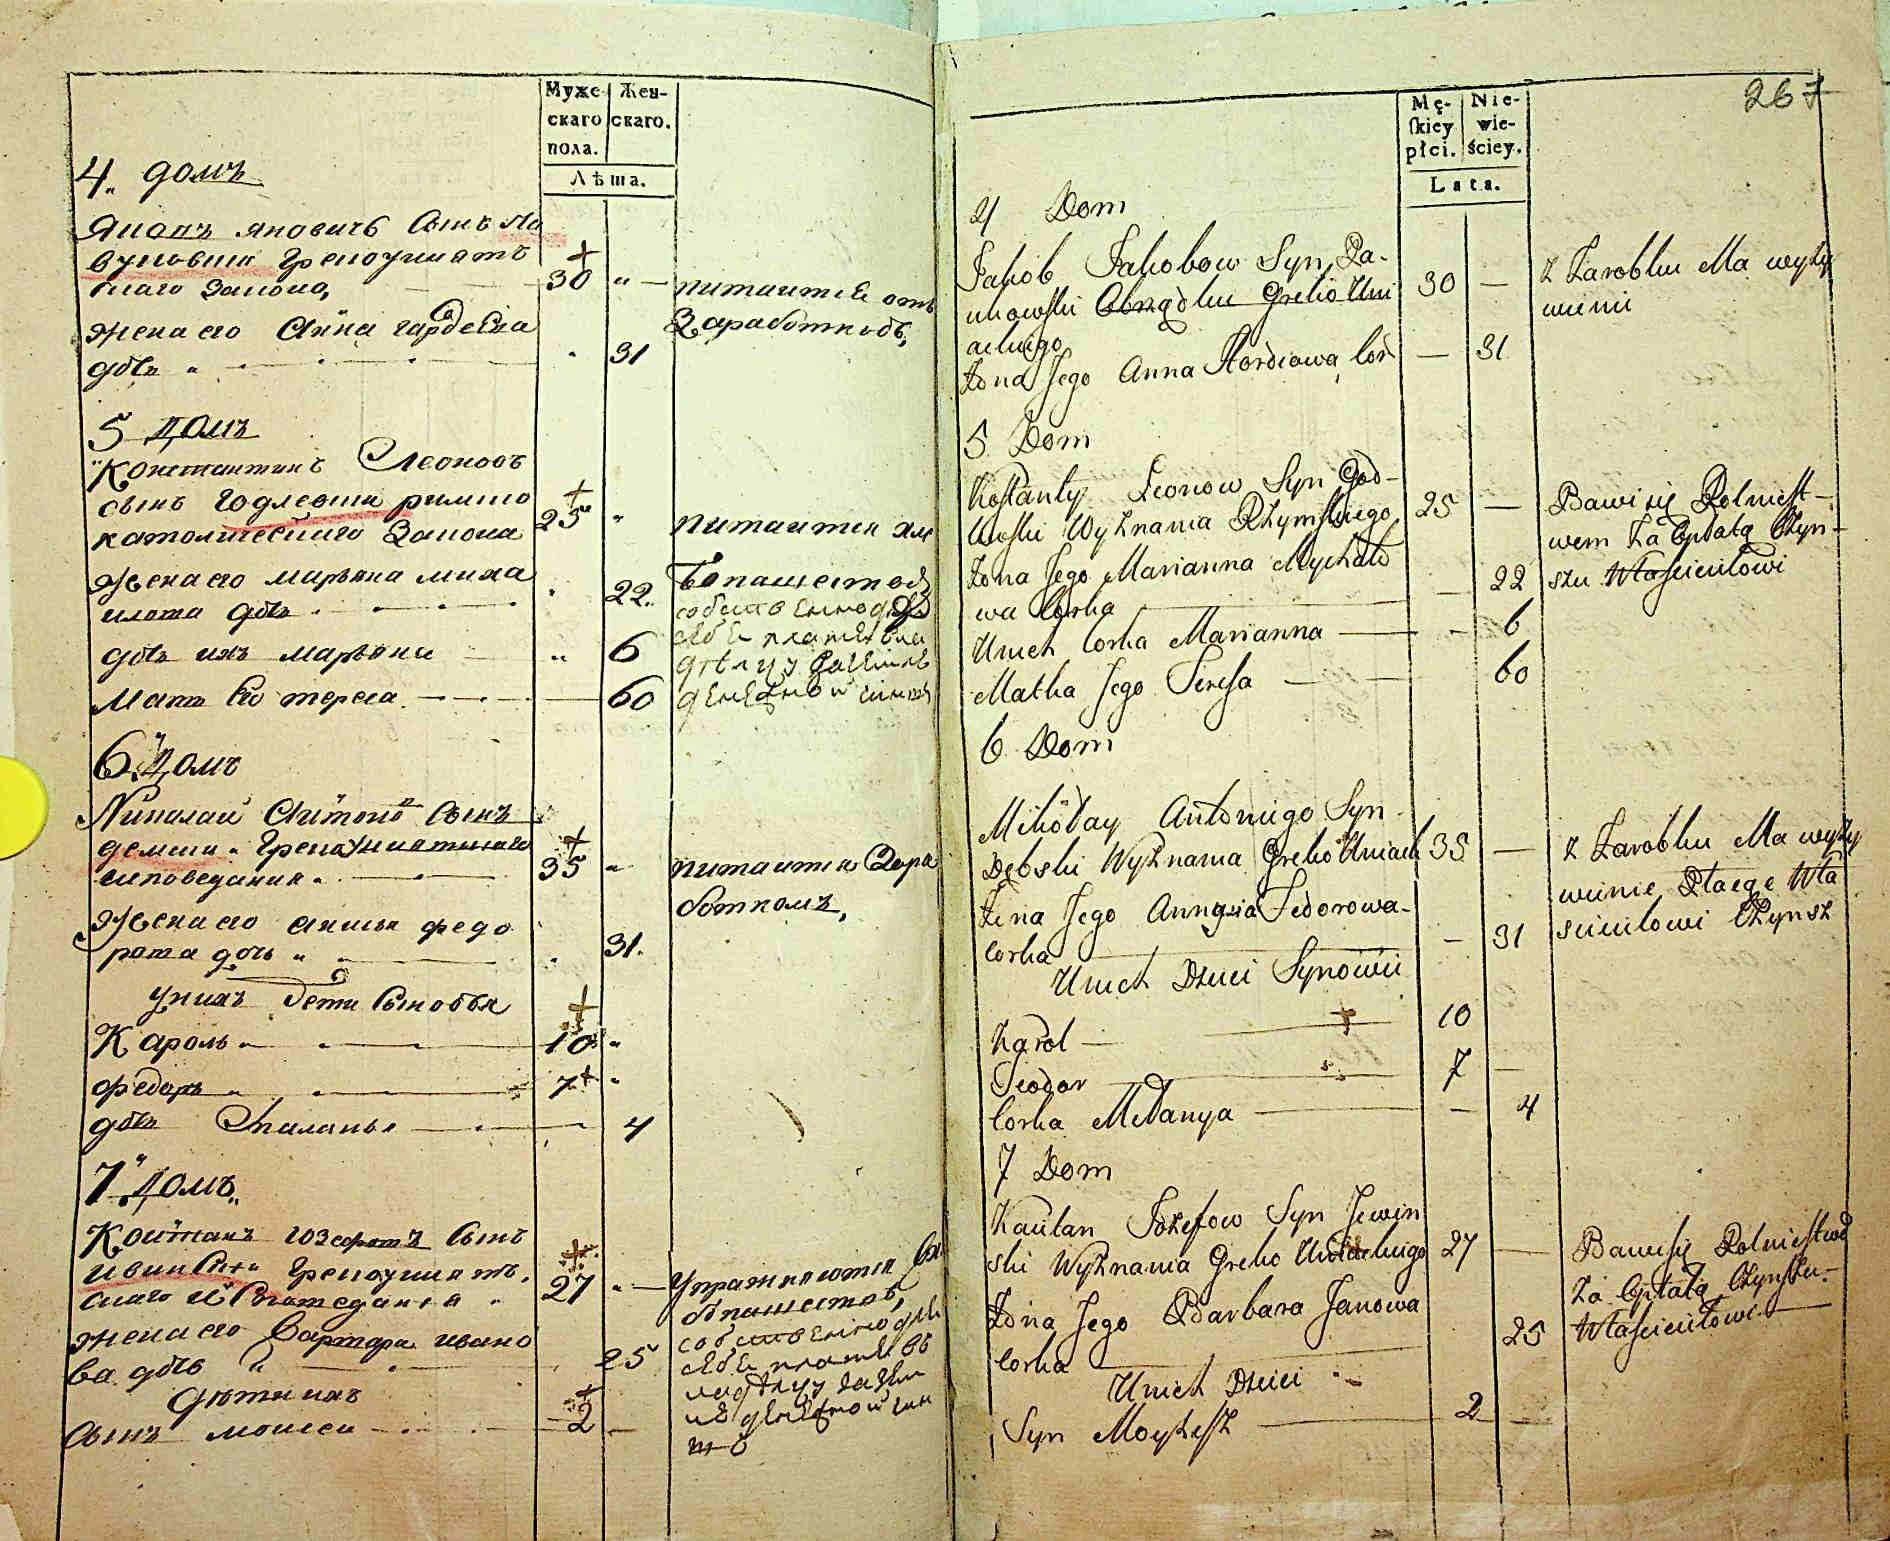 Муже-
скаго
пола.
Жен-
скаго.
Лѣта.
4. домъ
Якопъ яковичъ Сынъ
Грекоуниатъ
скаго Закона,
30 " — питаится отъ
Заработковъ,
жена его Анна гордеева
дочь " 31
5 домъ
Константинъ Леоновъ
сынъ годлевски римско
католическаго Закона
25 " питаится хле
бопашествомъ
жена его марьяна миха
илова дочь 22.
дочь ихъ марьяна — " 6
мать его тереса — 60
6 домъ
Николай Антоновъ Сынъ
демски Грекоуниатскаго
исповедания
35 " питаится Зара
боткомъ,
жена его федо
рова дочь " 31.
уних дети Сыновья
Кароль — 10 "
федоръ — 7 "
дочь — 4
7 домъ
Каитанъ юзефовъ Сынъ
Грекоуниатъ
скаго исповедания
27 " — упражняются
жена его Варвара ивано
ва дочь " 25
дети ихъ
Сынъ моисеи — 2 —
267
Mę-
skiey
płci.
Nie-
wie-
ściey.
Lata.
4 Dom
Jakob Jakobow Syn Pa-
ukowski Obrządku Greko Uni
ackiego
30 — z Zarobku Ma wyży
wienie
Żona Jego Anna Hordiowa Cor — 31
5 Dom
Kostanty Leonow Syn God-
lewski Wyznania Rzymskiego
25 — Bawi się Rolnict-
wem Za Opłatą Czyn-
szu Włascicielowi
Zona Jego Marianna Mychało
wa Corka — 22
Unich Corka Marianna — 6
Matka Jego Teresa — 60
6 Dom
Mikołay Antoniego Syn
Dębski Wyznania Greko Uniack
35 — z Zarobku Ma wyży
wienie Płacąc Wła
scicielowi Czynsz
Żona Jego Fedorowa-
Corka — 31
Unich Dzieci Synowie
Karol — 10
Teodor — 7 —
Corka Mełanya — 4
7 Dom
Kaietan Jozefow Syn Jewin
ski Wyznania Greko Uniackiego
27 — Bawi się Rolnictwe
Za Opłatą Czynszu-
Włascicielowi
Zona Jego Barbara Janowa
Corka 25
Unich Dzieci
Syn Moyżesz — 2 —